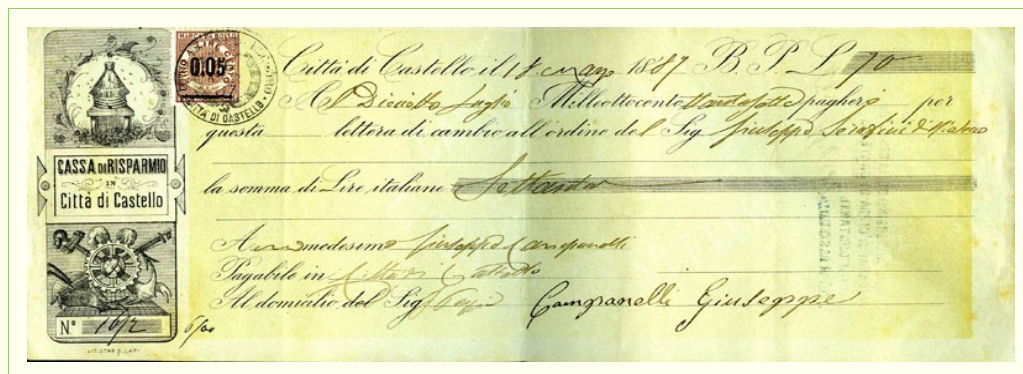 MARCA DA BOLLO
0.05
CITTÀ DI CASTELLO
CASSA DI RISPARMIO
IN
Città di Castello
Nº 1672
LIT. STAB. S. LAPI
Città di Castello, il 18 1887 B. P. L. 70
Al Diciotto Luglio Milleottocento pagherò per
questa lettera di cambio all'ordine del Sig Giuseppe Serafini di
la somma di Lire italiane Settanta
A me medesimo Giuseppe Campanelli
Pagabile in Città di Castello
Al domicilio del Sig
Campanelli Giuseppe